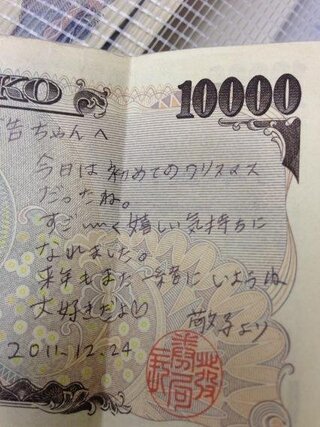 KO 10000
告ちゃんへ
今日は初めてのクリスマス
だったね。
すご〰く嬉しい気持ちに
なれました。
来年もまた一緒にいようね
大好きだよ♡
敬子より
2011.12.24
発券局長